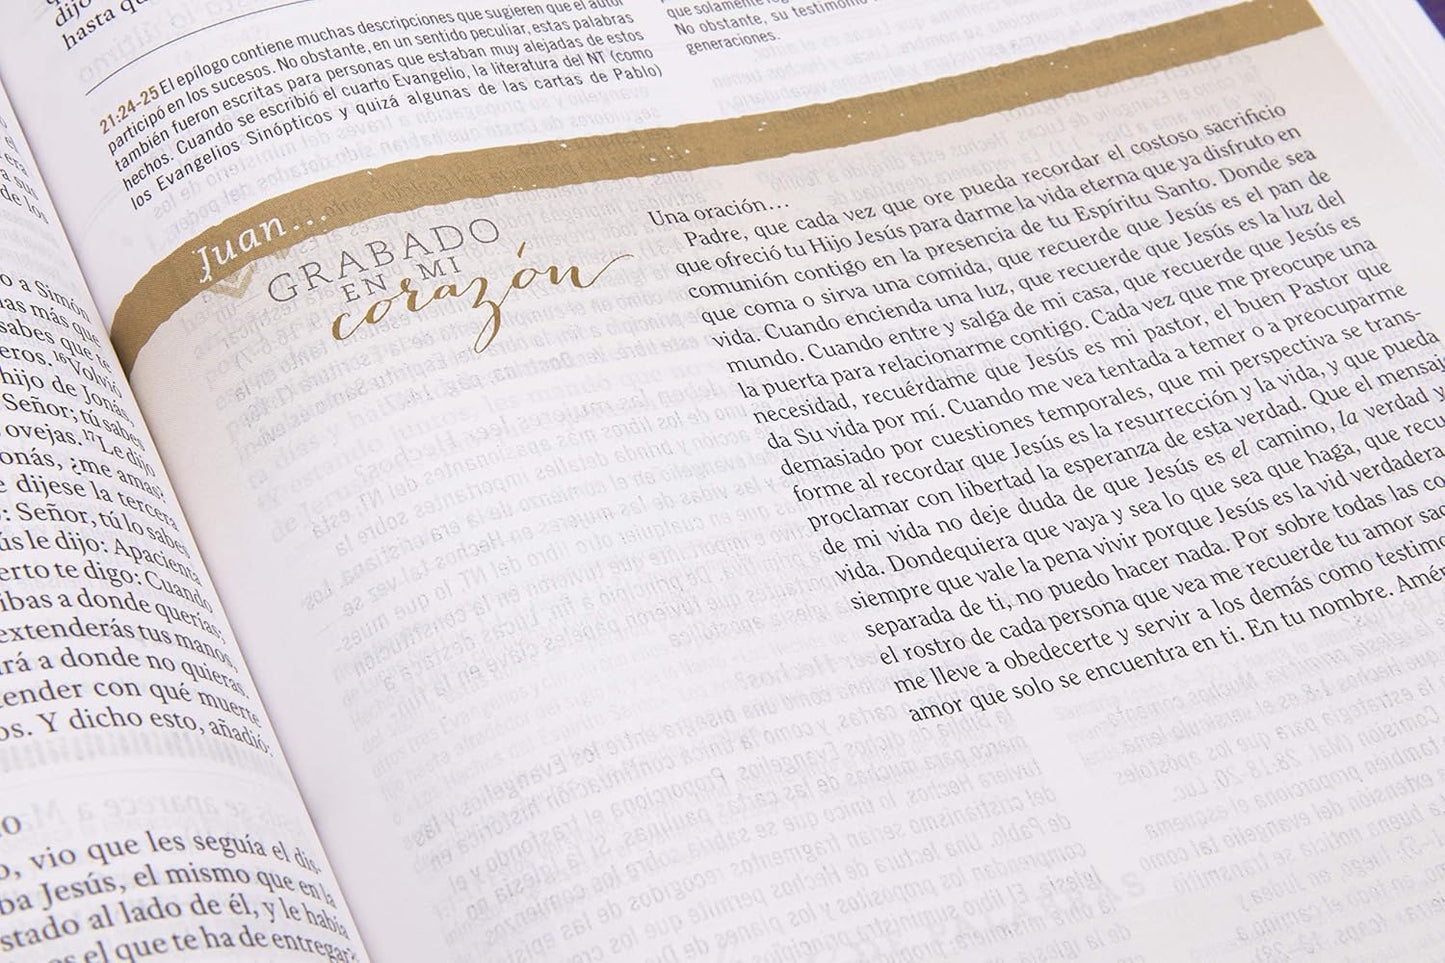 hasta qu
21:24-25 El epílogo contiene muchas descripciones que sugieren que el autor
participó en los sucesos. No obstante, en un sentido peculiar, estas palabras
también fueron escritas para personas que estaban muy alejadas de estos
hechos. Cuando se escribió el cuarto Evangelio, la literatura del NT (como
los Evangelios Sinópticos y quizá algunas de las cartas de Pablo)
que solamente
No obstante, su testimonio
generaciones.
Juan...
GRABADO
EN MI
corazón
Una oración...
Padre, que cada vez que ore pueda recordar el costoso sacrificio
que ofreció tu Hijo Jesús para darme la vida eterna que ya disfruto en
comunión contigo en la presencia de tu Espíritu Santo. Donde sea
que coma o sirva una comida, que recuerde que Jesús es el pan de
vida. Cuando encienda una luz, que recuerde que Jesús es la luz del
mundo. Cuando entre y salga de mi casa, que recuerde que Jesús es
la puerta para relacionarme contigo. Cada vez que me preocupe una
necesidad, recuérdame que Jesús es mi pastor, el buen Pastor que
da Su vida por mí. Cuando me vea tentada a temer o a preocuparme
demasiado por cuestiones temporales, que mi perspectiva se trans-
forme al recordar que Jesús es la resurrección y la vida, y que pueda
proclamar con libertad la esperanza de esta verdad. Que el mensaj
de mi vida no deje duda de que Jesús es el camino, la verdad y
vida. Dondequiera que vaya y sea lo que sea que haga, que recu
siempre que vale la pena vivir porque Jesús es la vid verdadera
separada de ti, no puedo hacer nada. Por sobre todas las co
el rostro de cada persona que vea me recuerde tu amor sac
me lleve a obedecerte y servir a los demás como testimo
amor que solo se encuentra en ti. En tu nombre. Amé
de los
o a Simón
más que
sabes que te
eros. 16 Volvió
hijo de Jonás,
Señor; tú sabes
ovejas. 17 Le dijo
onás, ¿me amas?
e dijese la tercera
: Señor, tú lo sabes
ús le dijo: Apacienta
erto te digo: Cuando
ibas a donde querías;
extenderás tus manos,
rá a donde no quieras.
ender con qué muerte
os. Y dicho esto, añadió:
o, vio que les seguía el dis-
ba Jesús, el mismo que en la
stado al lado de él, y le había
es el que te ha de entregar?